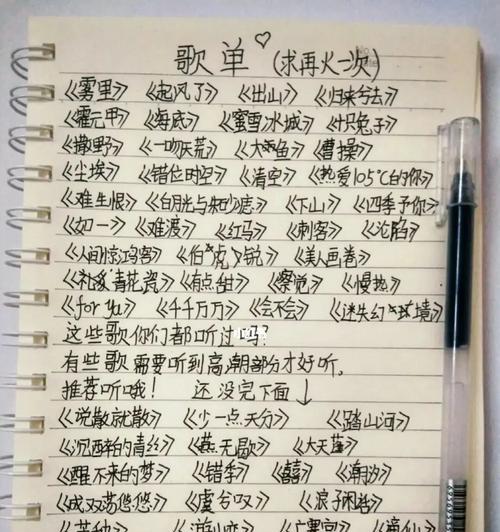 歌单♡(求再火一次)
《雾里》 《起风了》 《出山》 《归来兮去》
《霍元甲》 《海底》 《蜜雪冰城》 《十只兔子》
《撒野》 《一吻天荒》 《大鱼》 《曹操》
《尘埃》 《错位时空》 《清空》 《热爱105℃的你》
《难生恨》 《白月光与朱砂痣》 《下山》 《四季予你》
《如一》 《难渡》 《红马》 《刺客》 《沦陷》
《人间惊鸿客》 《伯虎说》 《美人画卷》
《礼爱青花瓷》 《有点甜》 《察觉》 《慢热》
《for ya》 《千千万万》 《会不会》 《迷失幻境》
这些歌你们都听过吗?
有些歌需要听到高潮部分才好听。
推荐听哦! 还没完下面↓
《说散就散》 《少一点天分》 《踏山河》
《沉西辞的青丝》 《燕无歇》 《大天蓬》
《醒不来的梦》 《错季》 《囍》 《潮汐》
《成双荡悠悠》 《虞兮叹》 《浪子闲话》
《芒种》 《广寒宫》 《谪仙》